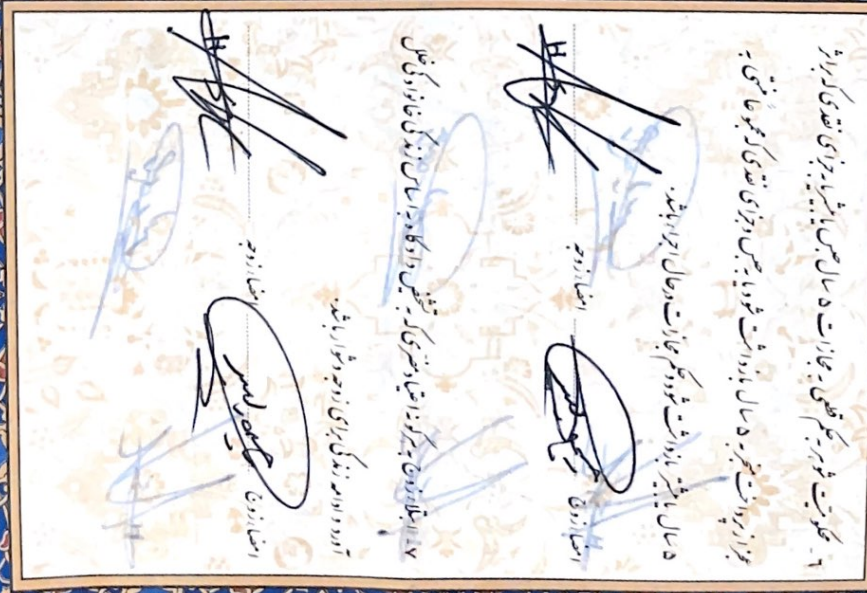 ۶ - محکومیت شوهر به حکم قطعی به مجازات ۵ سال حبس یا بیشتر یا به جزای نقدی که بر اثر
عجز از پرداخت منجر به ۵ سال بازداشت شود یا به حبس و جزای نقدی که مجموعا منتهی به
۵ سال یا بیشتر بازداشت شود و حکم مجازات در حال اجرا باشد.
امضاء زوج امضاء زوجه
۷ - ابتلاء زوج به هر گونه اعتیاد مضری که به تشخیص دادگاه به اساس زندگی خانوادگی خلل
آورد و ادامه زندگی برای زوجه دشوار باشد.
امضاء زوج امضاء زوجه